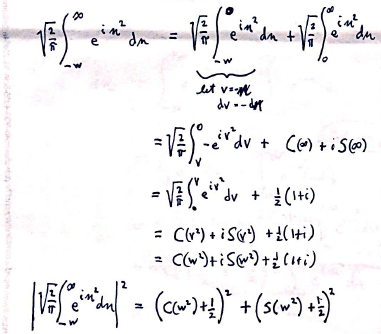 √(2/π) ∫_{-w}^{∞} e^{in²} dn = √(2/π) ∫_{-w}^{0} e^{in²} dn + √(2/π) ∫_{0}^{∞} e^{in²} dn
let v=-n
dv=-dn
= √(2/π) ∫_{v}^{0} -e^{iv²} dv + C(∞) + i S(∞)
= √(2/π) ∫_{0}^{v} e^{iv²} dv + 1/2 (1+i)
= C(v²) + i S(v²) + 1/2 (1+i)
= C(w²) + i S(w²) + 1/2 (1+i)
|√(2/π) ∫_{-w}^{∞} e^{in²} dn|² = (C(w²)+1/2)² + (S(w²)+1/2)²